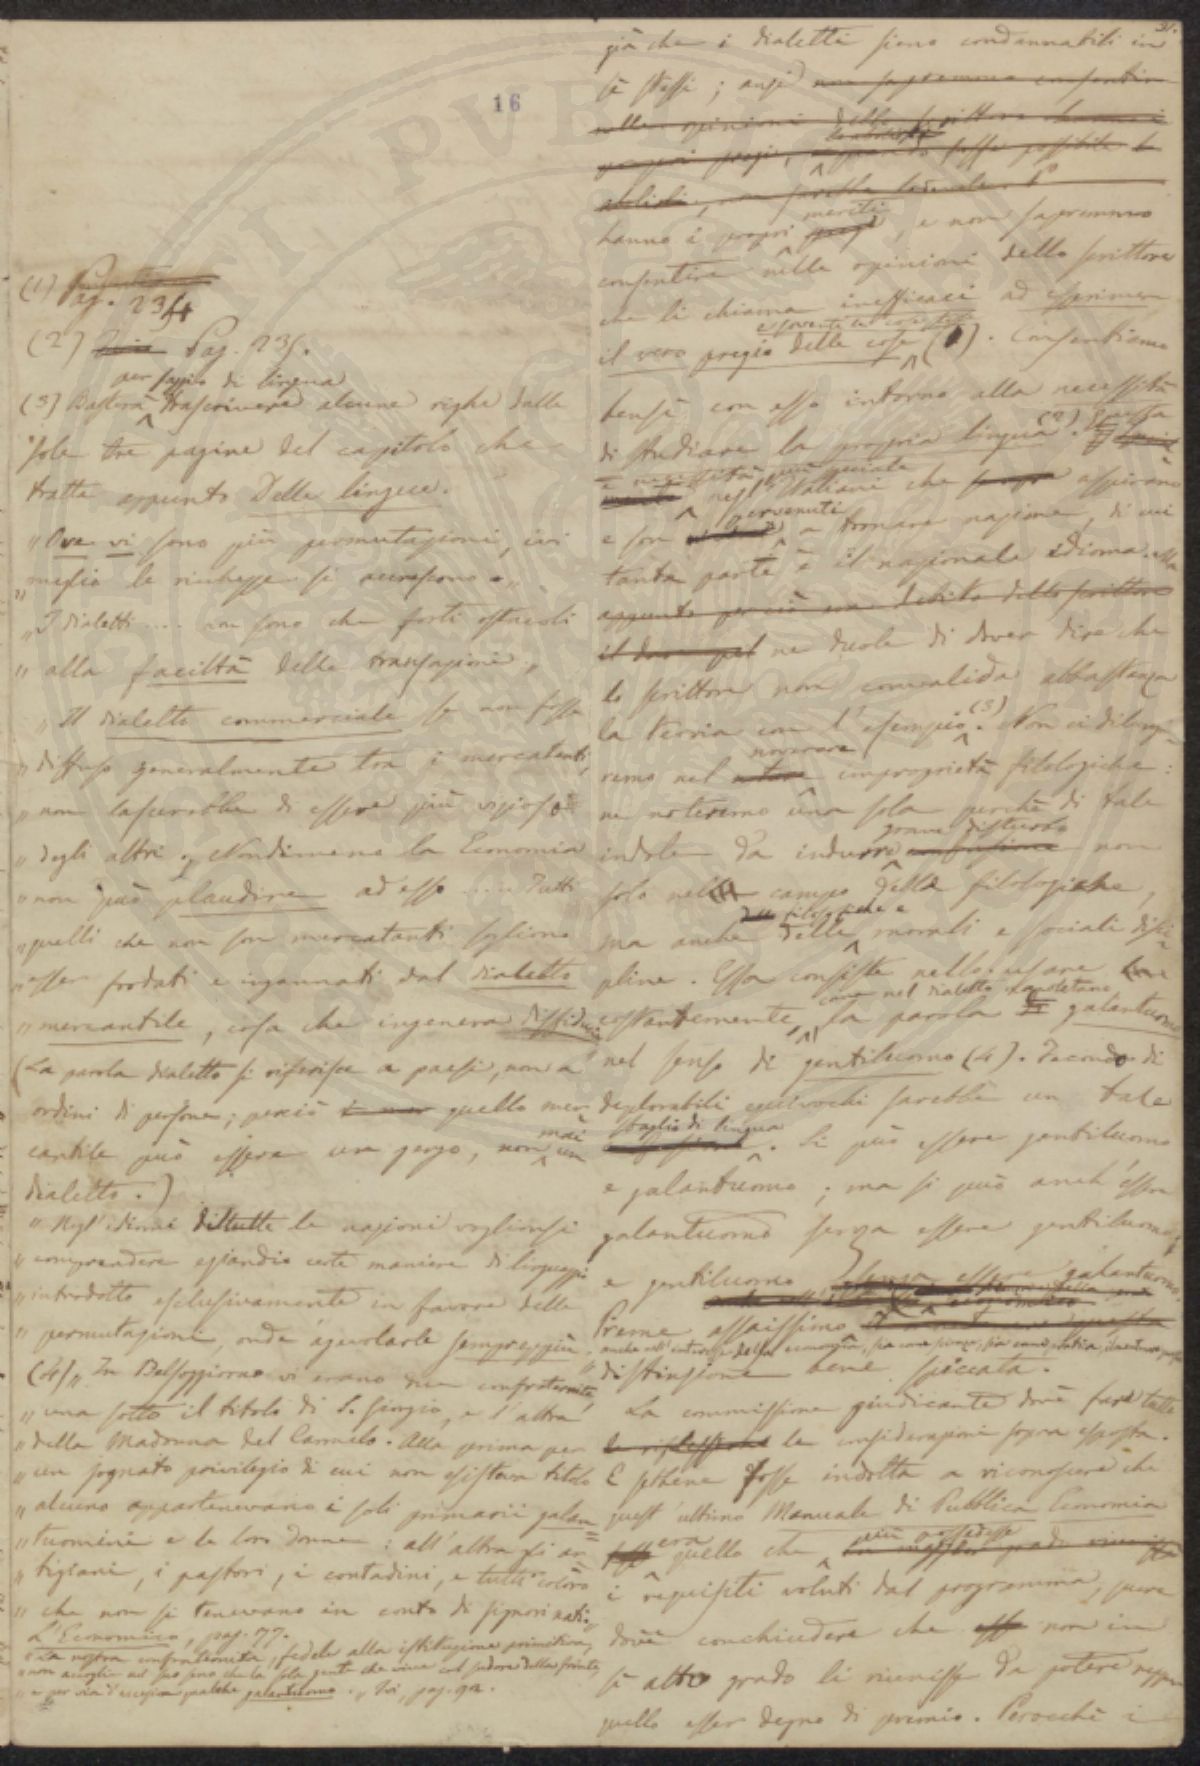 16
(1) Pag. 234
(2) Pag. 235.
per saggio di lingua
(3) Basterà trascrivere alcune righe dalle
sole tre pagine del capitolo che
tratta appunto Delle lingue.
„ Ove vi sono più permutazioni, ivi
„ meglio le ricchezze si accrescono. „
„ I dialetti .... non sono che forti ostacoli
„ alla facilità delle transazioni „
„ Il dialetto commerciale se non fosse
„ diffuso generalmente tra i mercatanti,
„ non lascerebbe di essere più vizioso
„ degli altri. Nondimeno la Economia
„ non può plaudire ad esso .... Tutti
„ quelli che non son mercatanti sogliono
„ esser frodati e ingannati dal dialetto
„ mercantile, cosa che ingenera
(La parola dialetto si riferisce a paesi, non a
ordini di persone; perciò quello mer
cantile può essere un gergo, non mai un
dialetto.)
„ Negl'idiomi di tutte le nazioni voglionsi
„ comprendere eziandio certe maniere di linguaggio
„ introdotto esclusivamente in favore delle
„ permutazioni, onde agevolarle sempreppiù.
(4) „ In Belsoggiorno vi erano due confraternite,
„ una sotto il titolo di S. Giorgio, e l'altra
„ della Madonna del Carmelo. Alla prima per
„ un sognato privilegio di cui non esisteva titolo
„ alcuno appartenevano i soli primarii galan
„ tuomini e le loro donne: all'altra gli ar
„ tigiani, i pastori, i contadini, e tutti coloro
„ che non si tenevano in conto di signori nati.
L'Economico, pag. 77.
„ La nostra confraternita, fedele alla istituzione primitiva,
„ non accoglie nel suo seno che la sola gente che vive col sudore della fronte,
„ e per via d'eccezione qualche galantuomo. „ Ivi, pag. 92.
31.
già che i dialetti sieno condannabili in
sè stessi; anzi non sapremmo consentire
nelle opinioni dello scrittore
hanno i propri meriti, e non sapremmo
consentire nelle opinioni dello scrittore
che li chiama inefficaci ad esprimere
il vero pregio delle cose (1). Consentiamo
bensì con esso intorno alla necessità
di studiare la propria lingua (2).
negl'Italiani che aspirano
e son pervenuti a tornare nazione, di cui
tanta parte è il nazionale idioma. Ma
appunto perciò
ne duole di dover dire che
lo scrittore non convalida abbastanza
la teoria con l'esempio (3). Non ci dilunghe
remo nel noverare improprietà filologiche:
ne noteremo una sola perchè di tale
indole da indurre grave disturbo non
solo nel campo delle filologiche,
ma anche delle filosofiche e morali e sociali disci
pline. Essa consiste nello usare
costantemente, come nel dialetto napoletano, la parola galantuomo
nel senso di gentiluomo (4). Fecondo di
deplorabili equivochi sarebbe un tale
sbaglio di lingua. Si può essere gentiluomo
e galantuomo; ma si può anch'essere
galantuomo senza essere gentiluomo,
e gentiluomo senza essere galantuomo.
Preme assaissimo
distinzione bene spiccata.
La commissione giudicante dovè fare tutte
le riflessioni le considerazioni sopra esposte.
E sebbene fosse indotta a riconoscere che
quest'ultimo Manuale di Pubblica Economia
era quello che più possedesse
i requisiti voluti dal programma, pure
dovè conchiudere che non in
sì alto grado li riunisse da potere neppur
quello esser degno di premio. Perocchè i